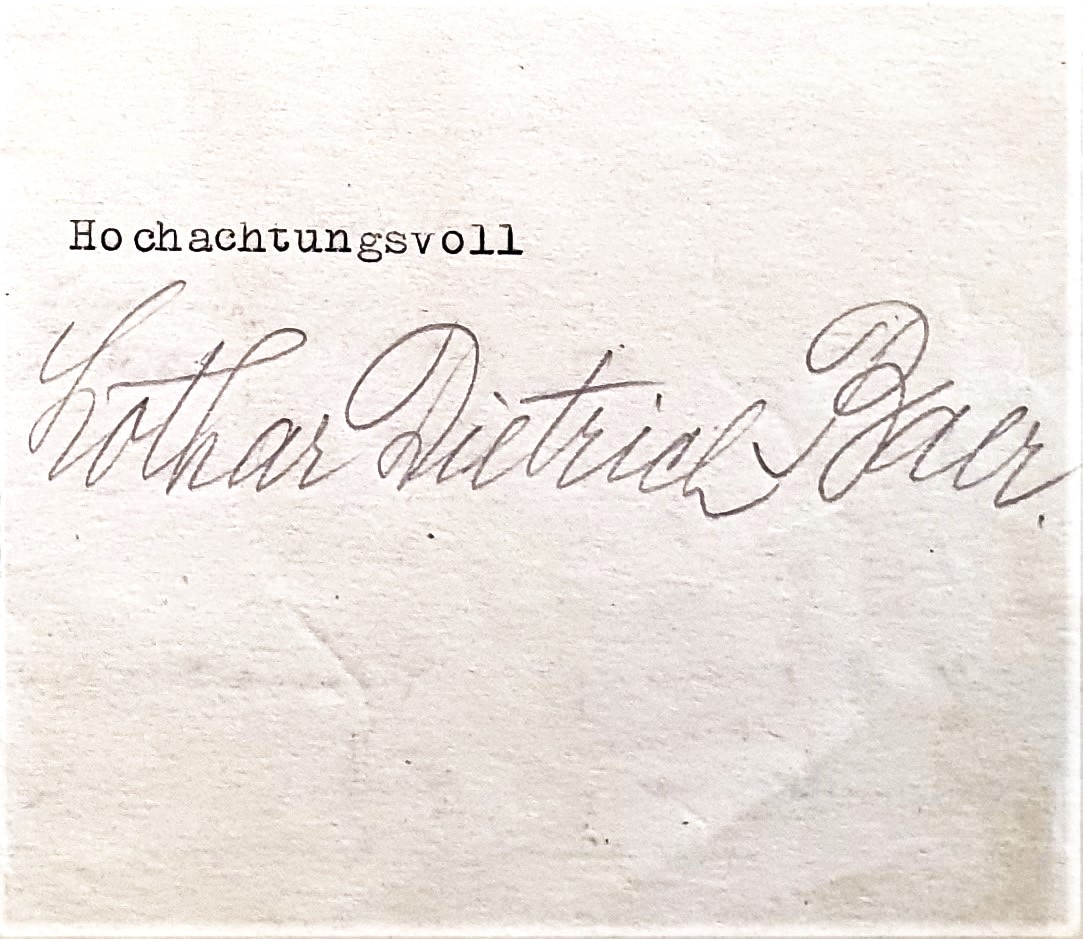 Hochachtungsvoll
Lothar Dietrich Baer.